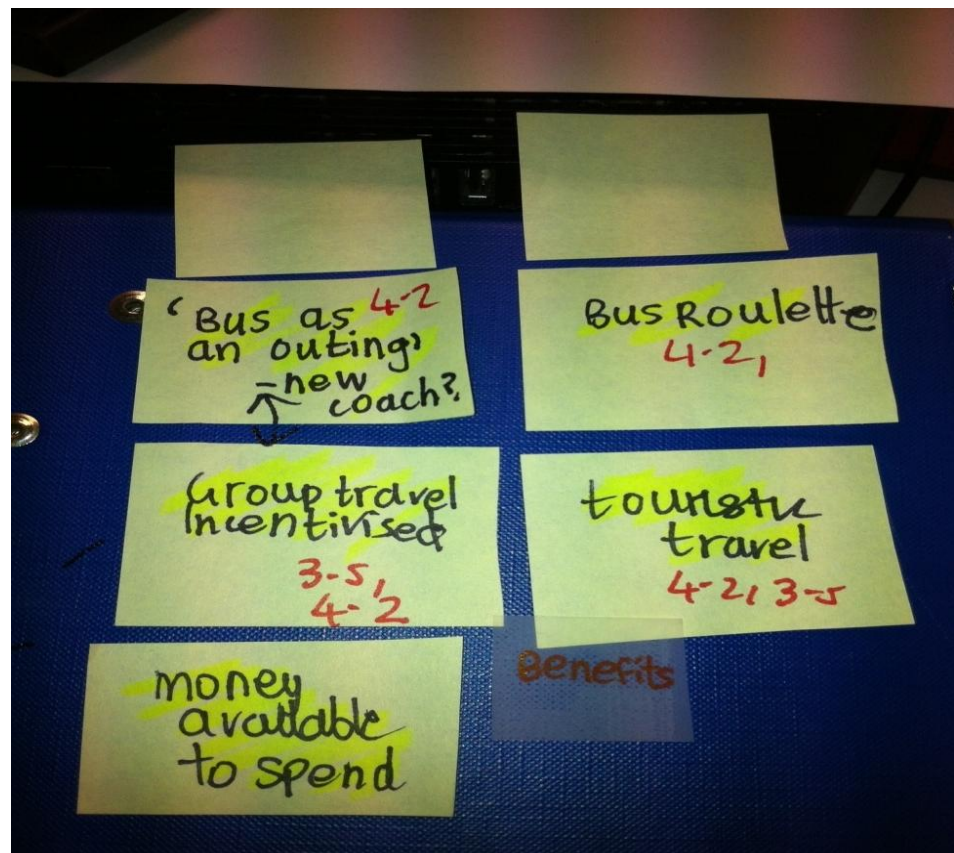 'Bus as 4-2
an outing'
-new
coach?
Bus Roulette
4-2,
Group travel
Incentivised
3-5,
4-2
touristic
travel
4-2, 3-5
Benefits
money
available
to spend